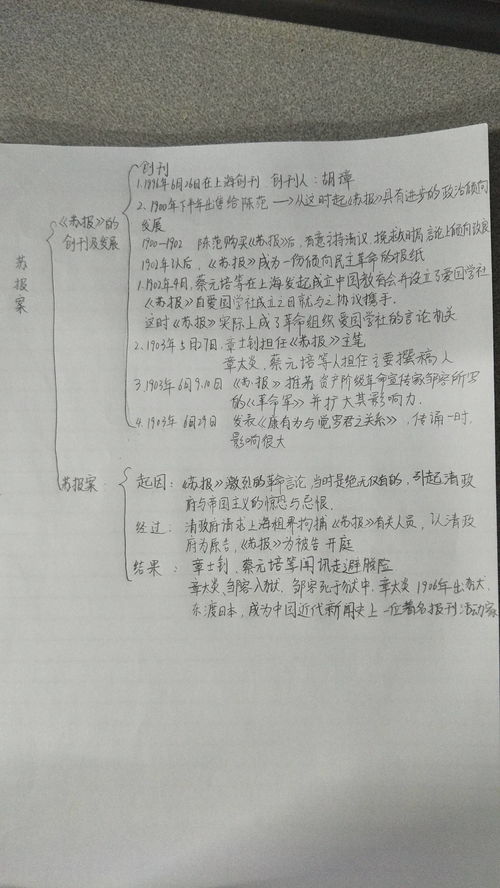 苏报案
《苏报》的
创刊及发展
创刊
1.1896年6月26日在上海创刊 创刊人:胡璋
2.1900年下半年出售给陈范 → 从这时起《苏报》具有进步的政治倾向
发展
1900-1902 陈范购买《苏报》后,有意主持清议,挽救时局言论上倾向改良
1902年以后,《苏报》成为一份倾向民主革命的报纸
1.1902年4月,蔡元培等在上海发起成立中国教育会并设立了爱国学社
《苏报》自爱国学社成立之日就与之协议携手.
这时《苏报》实际上成了革命组织爱国学社的言论机关
2.1903年5月27日,章士钊担任《苏报》主笔
章太炎,蔡元培等人担任主要撰稿人
3.1903年6月9.10日 《苏报》推荐资产阶级革命宣传家邹容所写
的《革命军》并扩大其影响力.
4.1903年6月29日 发表《康有为与觉罗君之关系》,传诵一时,
影响很大
苏报案:
起因:《苏报》激烈的革命言论,当时是绝无仅有的,引起清政
府与帝国主义的惊恐与忌恨.
经过:清政府请求上海租界拘捕《苏报》有关人员,认清政
府为原告,《苏报》为被告开庭
结果:章士钊、蔡元培等闻讯走避脱险
章太炎、邹容入狱,邹容死于狱中.章太炎1906年出狱
东渡日本,成为中国近代新闻史上一位著名报刊活动家